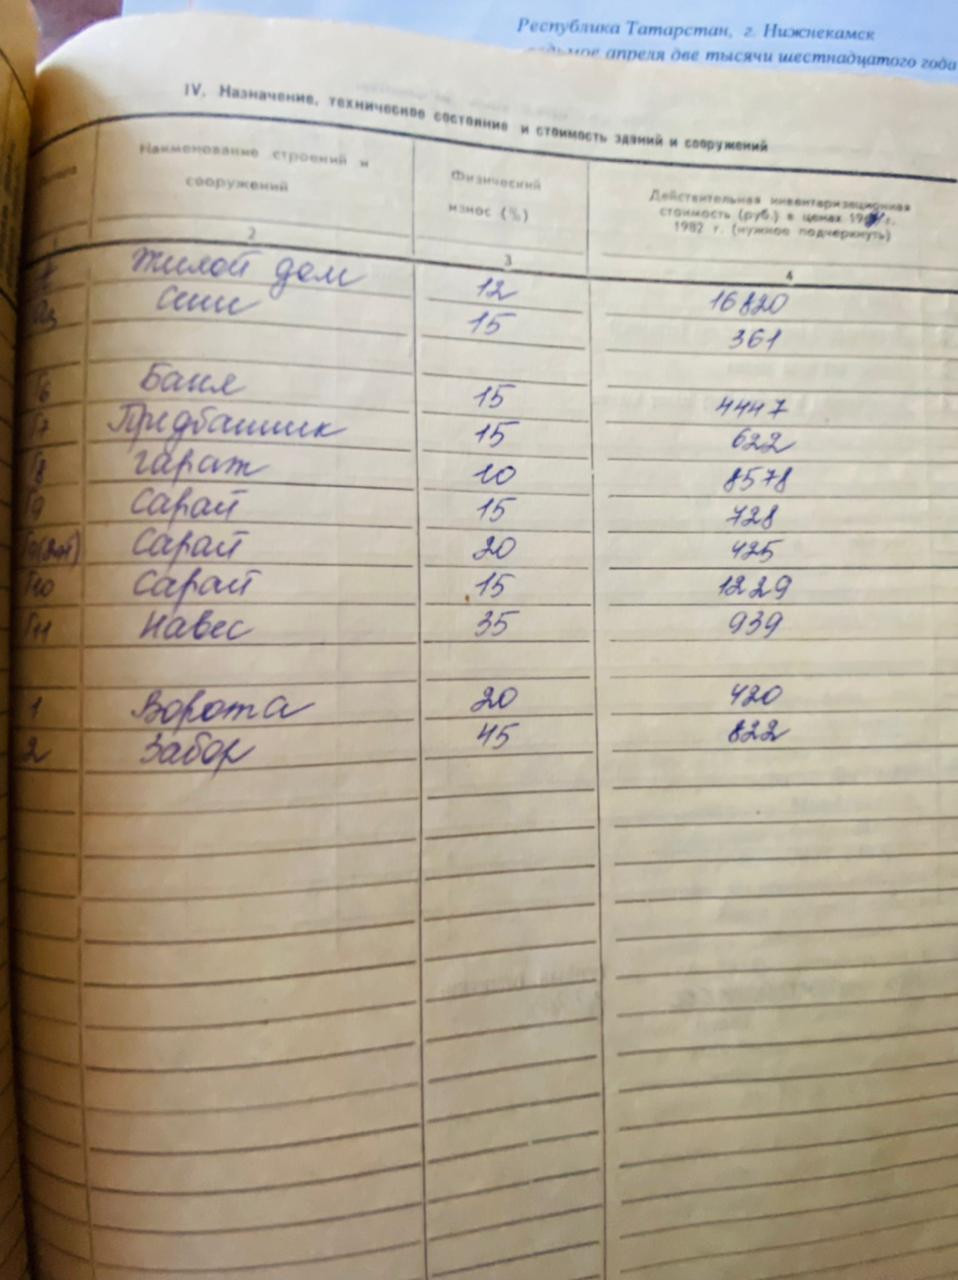 Республика Татарстан, г. Нижнекамск
апреля две тысячи шестнадцатого года
IV. Назначение, техническое состояние и стоимость зданий и сооружений
Наименование строений и
сооружений
Физический
износ (%)
Действительная инвентаризационная
стоимость (руб.) в ценах 1969 г.
1982 г. (нужное подчеркнуть)
1 2 3 4
Жилой дом 12 16820
Сени 15 361
Г6 Баня 15 4447
Г7 Предбанник 15 622
Г8 Гараж 10 8578
Г9 Сарай 15 728
Сарай 20 425
Г10 Сарай 15 1229
Г11 Навес 35 939
1 Ворота 20 420
2 Забор 45 822